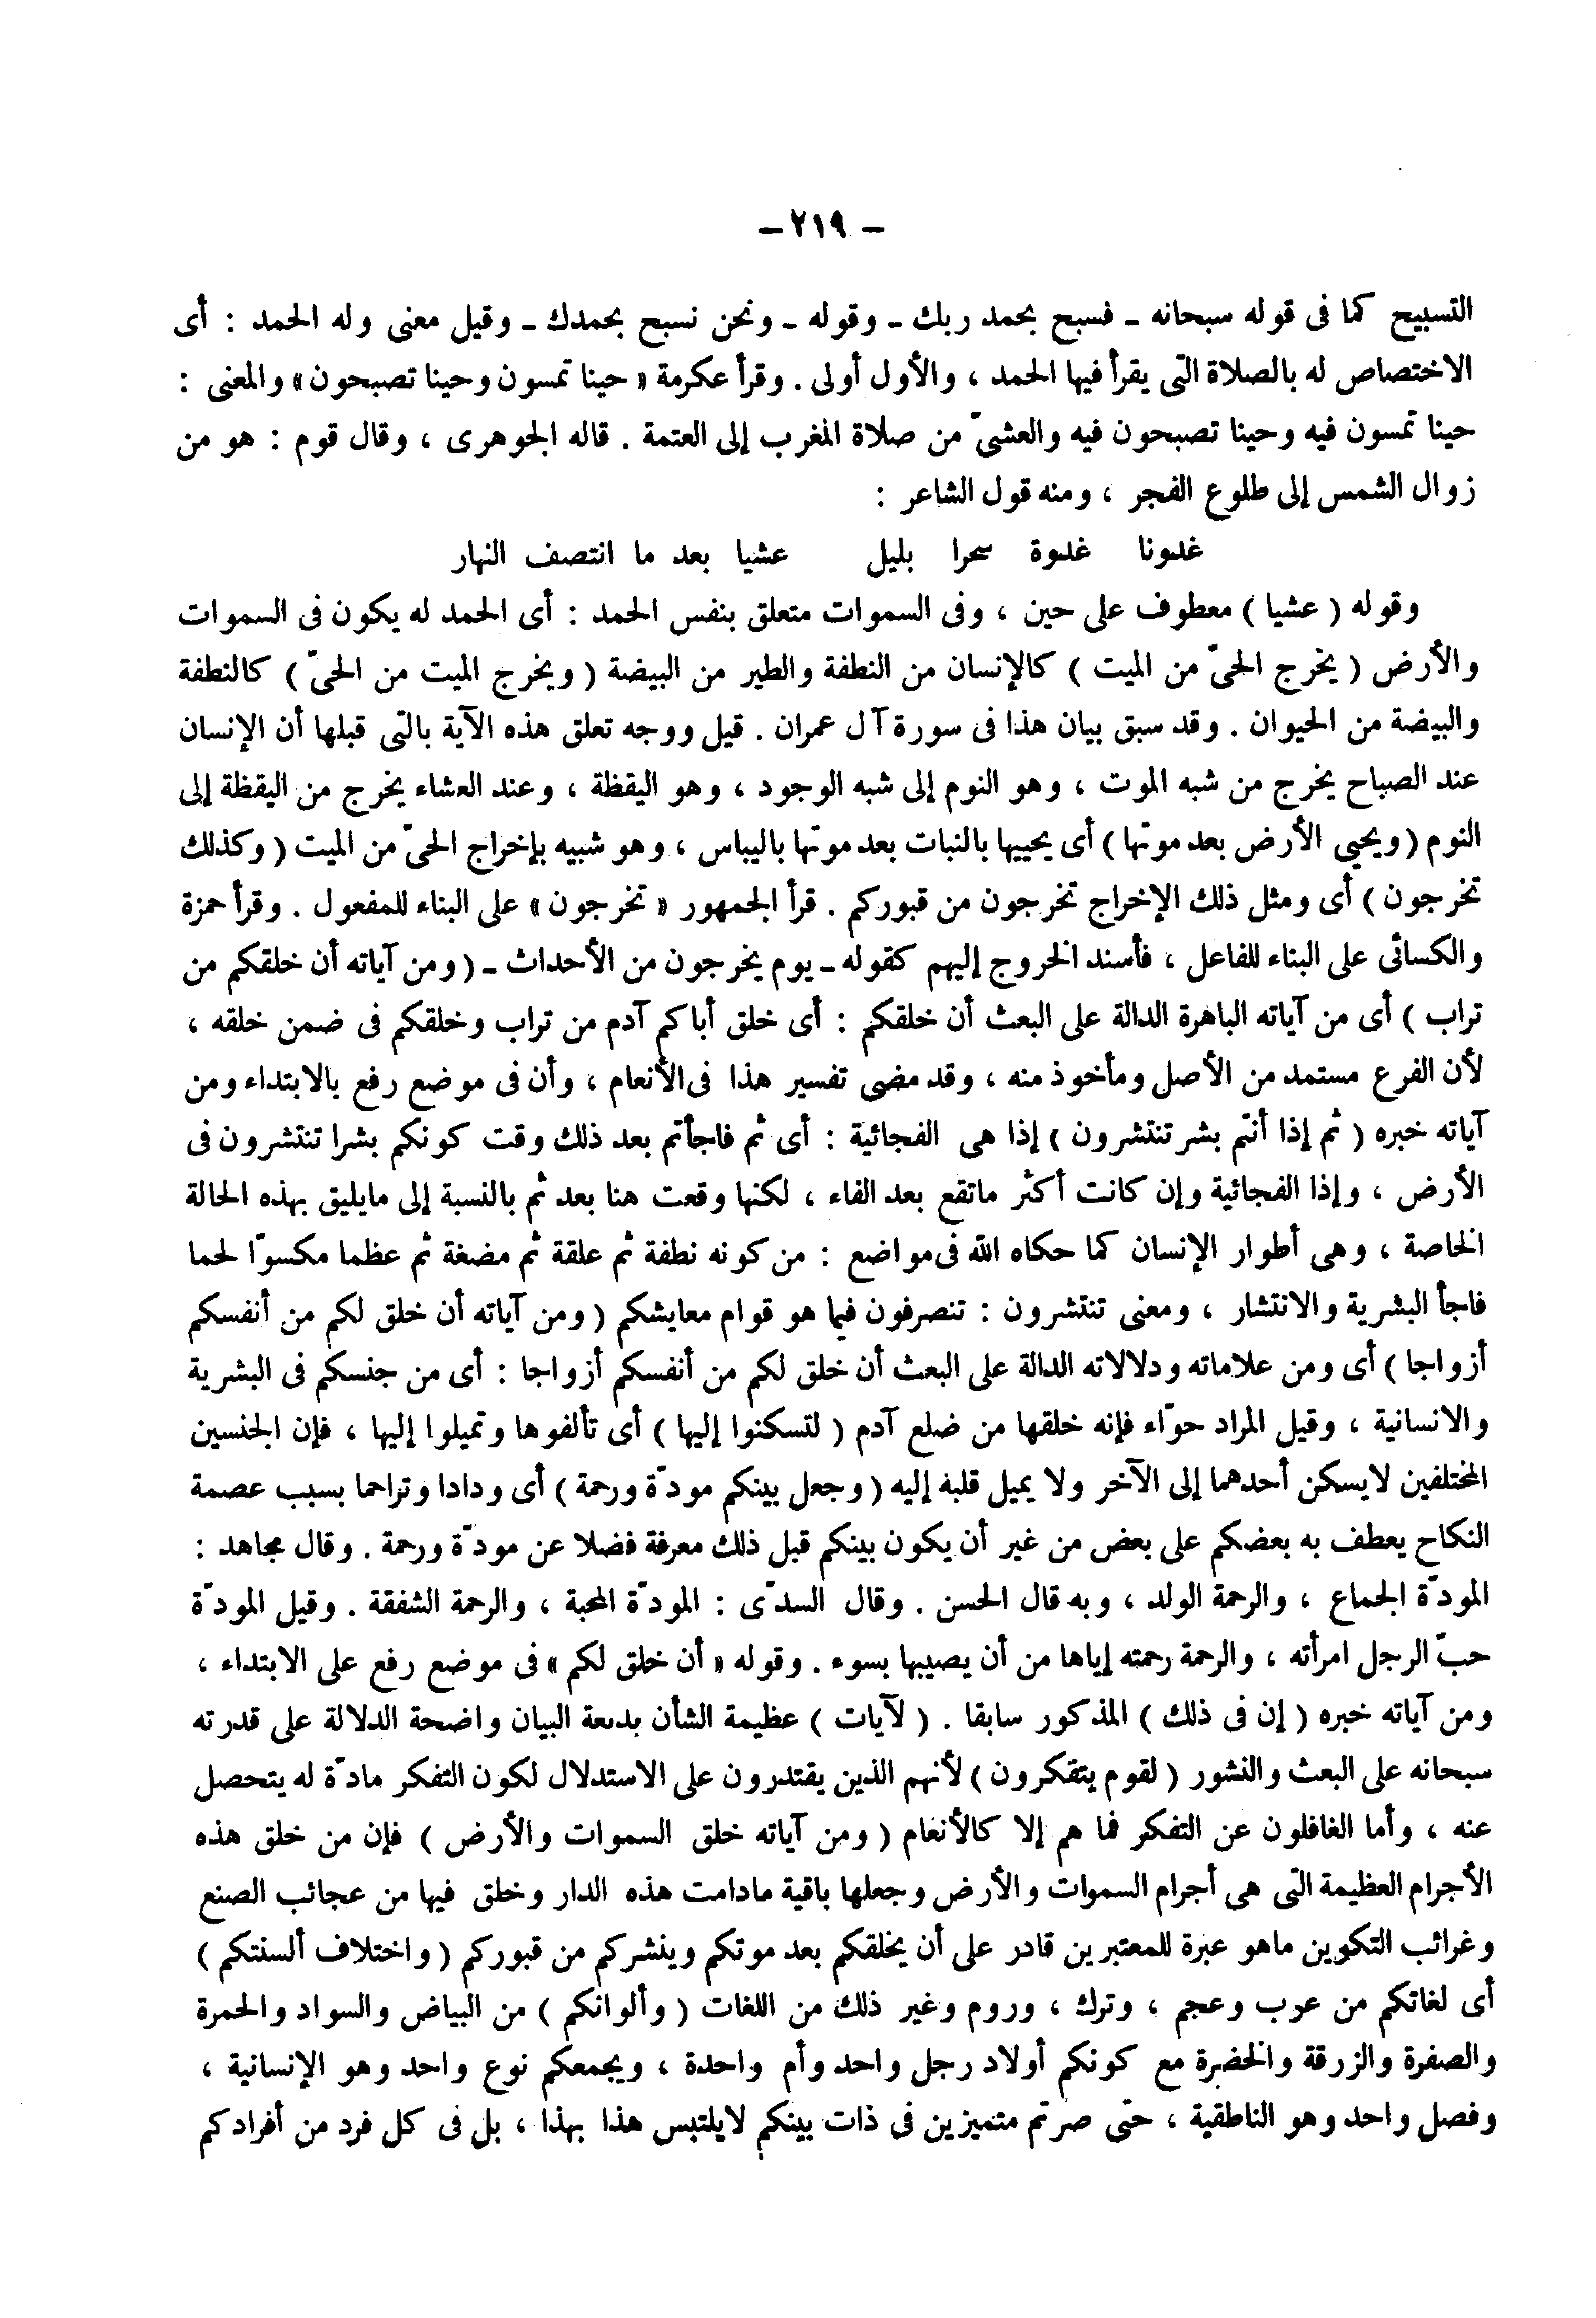 – ٢١٩ –
التسبيح كما فى قوله سبحانه ـ فسبح بحمد ربك ـ وقوله ـ ونحن نسبح بحمدك ـ وقيل معنى وله الحمد : أى
الاختصاص له بالصلاة التى يقرأ فيها الحمد ، والأول أولى . وقرأ عكرمة « حينا تمسون وحينا تصبحون » والمعنى :
حينا تمسون فيه وحينا تصبحون فيه والعشىّ من صلاة المغرب إلى العتمة . قاله الجوهرى ، وقال قوم : هو من
زوال الشمس إلى طلوع الفجر ، ومنه قول الشاعر :
غدونا غدوة سحرا بليل عشيا بعد ما انتصف النهار
وقوله ( عشيا ) معطوف على حين ، وفى السموات متعلق بنفس الحمد : أى الحمد له يكون فى السموات
والأرض ( يخرج الحىّ من الميت ) كالإنسان من النطفة والطير من البيضة ( ويخرج الميت من الحىّ ) كالنطفة
والبيضة من الحيوان . وقد سبق بيان هذا فى سورة آل عمران . قيل ووجه تعلق هذه الآية بالتى قبلها أن الإنسان
عند الصباح يخرج من شبه الموت ، وهو النوم إلى شبه الوجود ، وهو اليقظة ، وعند العشاء يخرج من اليقظة إلى
النوم ( ويحيى الأرض بعد موتها ) أى يحييها بالنبات بعد موتها باليباس ، وهو شبيه بإخراج الحىّ من الميت ( وكذلك
تخرجون ) أى ومثل ذلك الإخراج تخرجون من قبوركم . قرأ الجمهور « تخرجون » على البناء للمفعول . وقرأ حمزة
والكسائى على البناء للفاعل ، فأسند الخروج إليهم كقوله ـ يوم يخرجون من الأحداث ـ ( ومن آياته أن خلقكم من
تراب ) أى من آياته الباهرة الدالة على البعث أن خلقكم : أى خلق أباكم آدم من تراب وخلقكم فى ضمن خلقه ،
لأن الفرع مستمد من الأصل ومأخوذ منه ، وقد مضى تفسير هذا فى الأنعام ، وأن فى موضع رفع بالابتداء ومن
آياته خبره ( ثم إذا أنتم بشر تنتشرون ) إذا هى الفجائية : أى ثم فاجأتم بعد ذلك وقت كونكم بشرا تنتشرون فى
الأرض ، وإذا الفجائية وإن كانت أكثر ماتقع بعد الفاء ، لكنها وقعت هنا بعد ثم بالنسبة إلى مايليق بهذه الحالة
الخاصة ، وهى أطوار الإنسان كما حكاه الله فى مواضع : من كونه نطفة ثم علقة ثم مضغة ثم عظما مكسوّا لحما
فاجأ البشرية والانتشار ، ومعنى تنتشرون : تنصرفون فيما هو قوام معايشكم ( ومن آياته أن خلق لكم من أنفسكم
أزواجا ) أى ومن علاماته ودلالاته الدالة على البعث أن خلق لكم من أنفسكم أزواجا : أى من جنسكم فى البشرية
والانسانية ، وقيل المراد حوّاء فإنه خلقها من ضلع آدم ( لتسكنوا إليها ) أى تألفوها وتميلوا إليها ، فإن الجنسين
المختلفين لايسكن أحدهما إلى الآخر ولا يميل قلبه إليه ( وجعل بينكم مودّة ورحمة ) أى ودادا وتراحما بسبب عصمة
النكاح يعطف به بعضكم على بعض من غير أن يكون بينكم قبل ذلك معرفة فضلا عن مودّة ورحمة . وقال مجاهد :
المودّة الجماع ، والرحمة الولد ، وبه قال الحسن . وقال السدّى : المودّة المحبة ، والرحمة الشفقة . وقيل المودّة
حبّ الرجل امرأته ، والرحمة رحمته إياها من أن يصيبها بسوء . وقوله « أن خلق لكم » فى موضع رفع على الابتداء ،
ومن آياته خبره ( إن فى ذلك ) المذكور سابقا . ( لآيات ) عظيمة الشأن بديعة البيان واضحة الدلالة على قدرته
سبحانه على البعث والنشور ( لقوم يتفكرون ) لأنهم الذين يقتدرون على الاستدلال لكون التفكر مادّة له يتحصل
عنه ، وأما الغافلون عن التفكر فما هم إلا كالأنعام ( ومن آياته خلق السموات والأرض ) فإن من خلق هذه
الأجرام العظيمة التى هى أجرام السموات والأرض وجعلها باقية مادامت هذه الدار وخلق فيها من عجائب الصنع
وغرائب التكوين ماهو عبرة للمعتبرين قادر على أن يخلقكم بعد موتكم وينشركم من قبوركم ( واختلاف ألسنتكم )
أى لغاتكم من عرب وعجم ، وترك ، وروم وغير ذلك من اللغات ( وألوانكم ) من البياض والسواد والحمرة
والصفرة والزرقة والخضرة مع كونكم أولاد رجل واحد وأم واحدة ، ويجمعكم نوع واحد وهو الإنسانية ،
وفصل واحد وهو الناطقية ، حتى صرتم متميزين فى ذات بينكم لايلتبس هذا بهذا ، بل فى كل فرد من أفرادكم